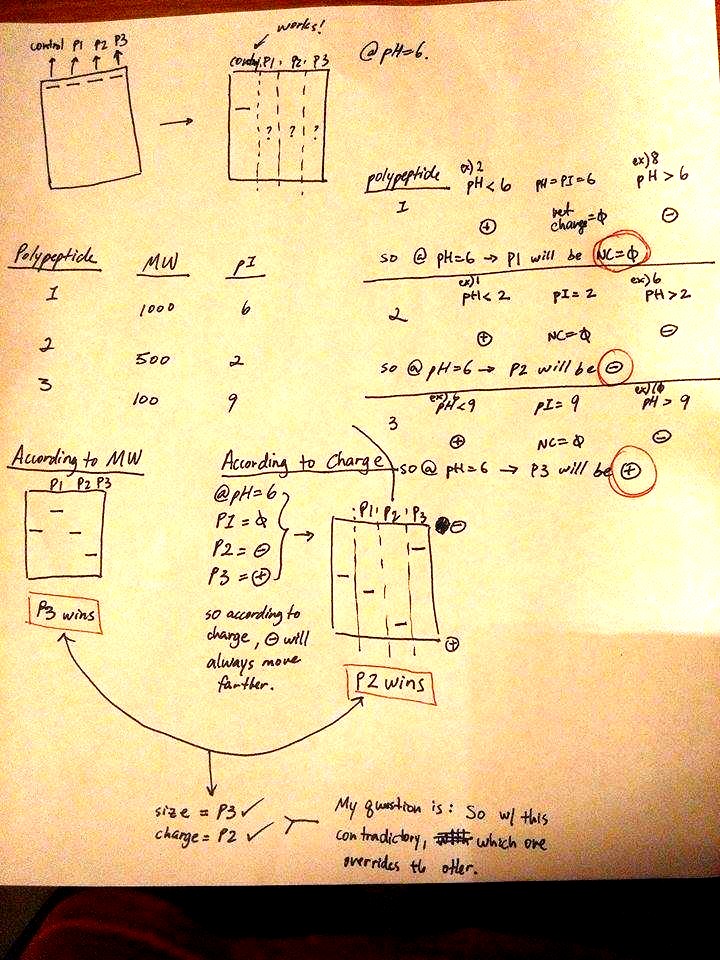 works!
control P1 P2 P3
control P1 P2 P3
@pH=6.
? ? ?
polypeptide
ex) 2
pH<6
pH=PI=6
ex) 8
pH>6
1
⊕
net charge=ϕ
⊖
so @ pH=6 → P1 will be NC=ϕ
2
ex) 1
pH<2
pI=2
ex) 6
pH>2
⊕
NC=ϕ
⊖
so @ pH=6 → P2 will be ⊖
3
ex) 6
pH<9
pI=9
ex) 10
pH>9
⊕
NC=ϕ
⊖
so @ pH=6 → P3 will be ⊕
Polypeptide MW pI
1 1000 6
2 500 2
3 100 9
According to MW
P1 P2 P3
P3 wins
According to Charge
@pH=6
P1=ϕ
P2=⊖
P3=⊕
so according to
charge, ⊖ will
always move
farther.
P1 P2 P3
⊖
⊕
P2 wins
size = P3 ✓
charge = P2 ✓
My question is: So w/ this
contradictory, which one
overrides the other.